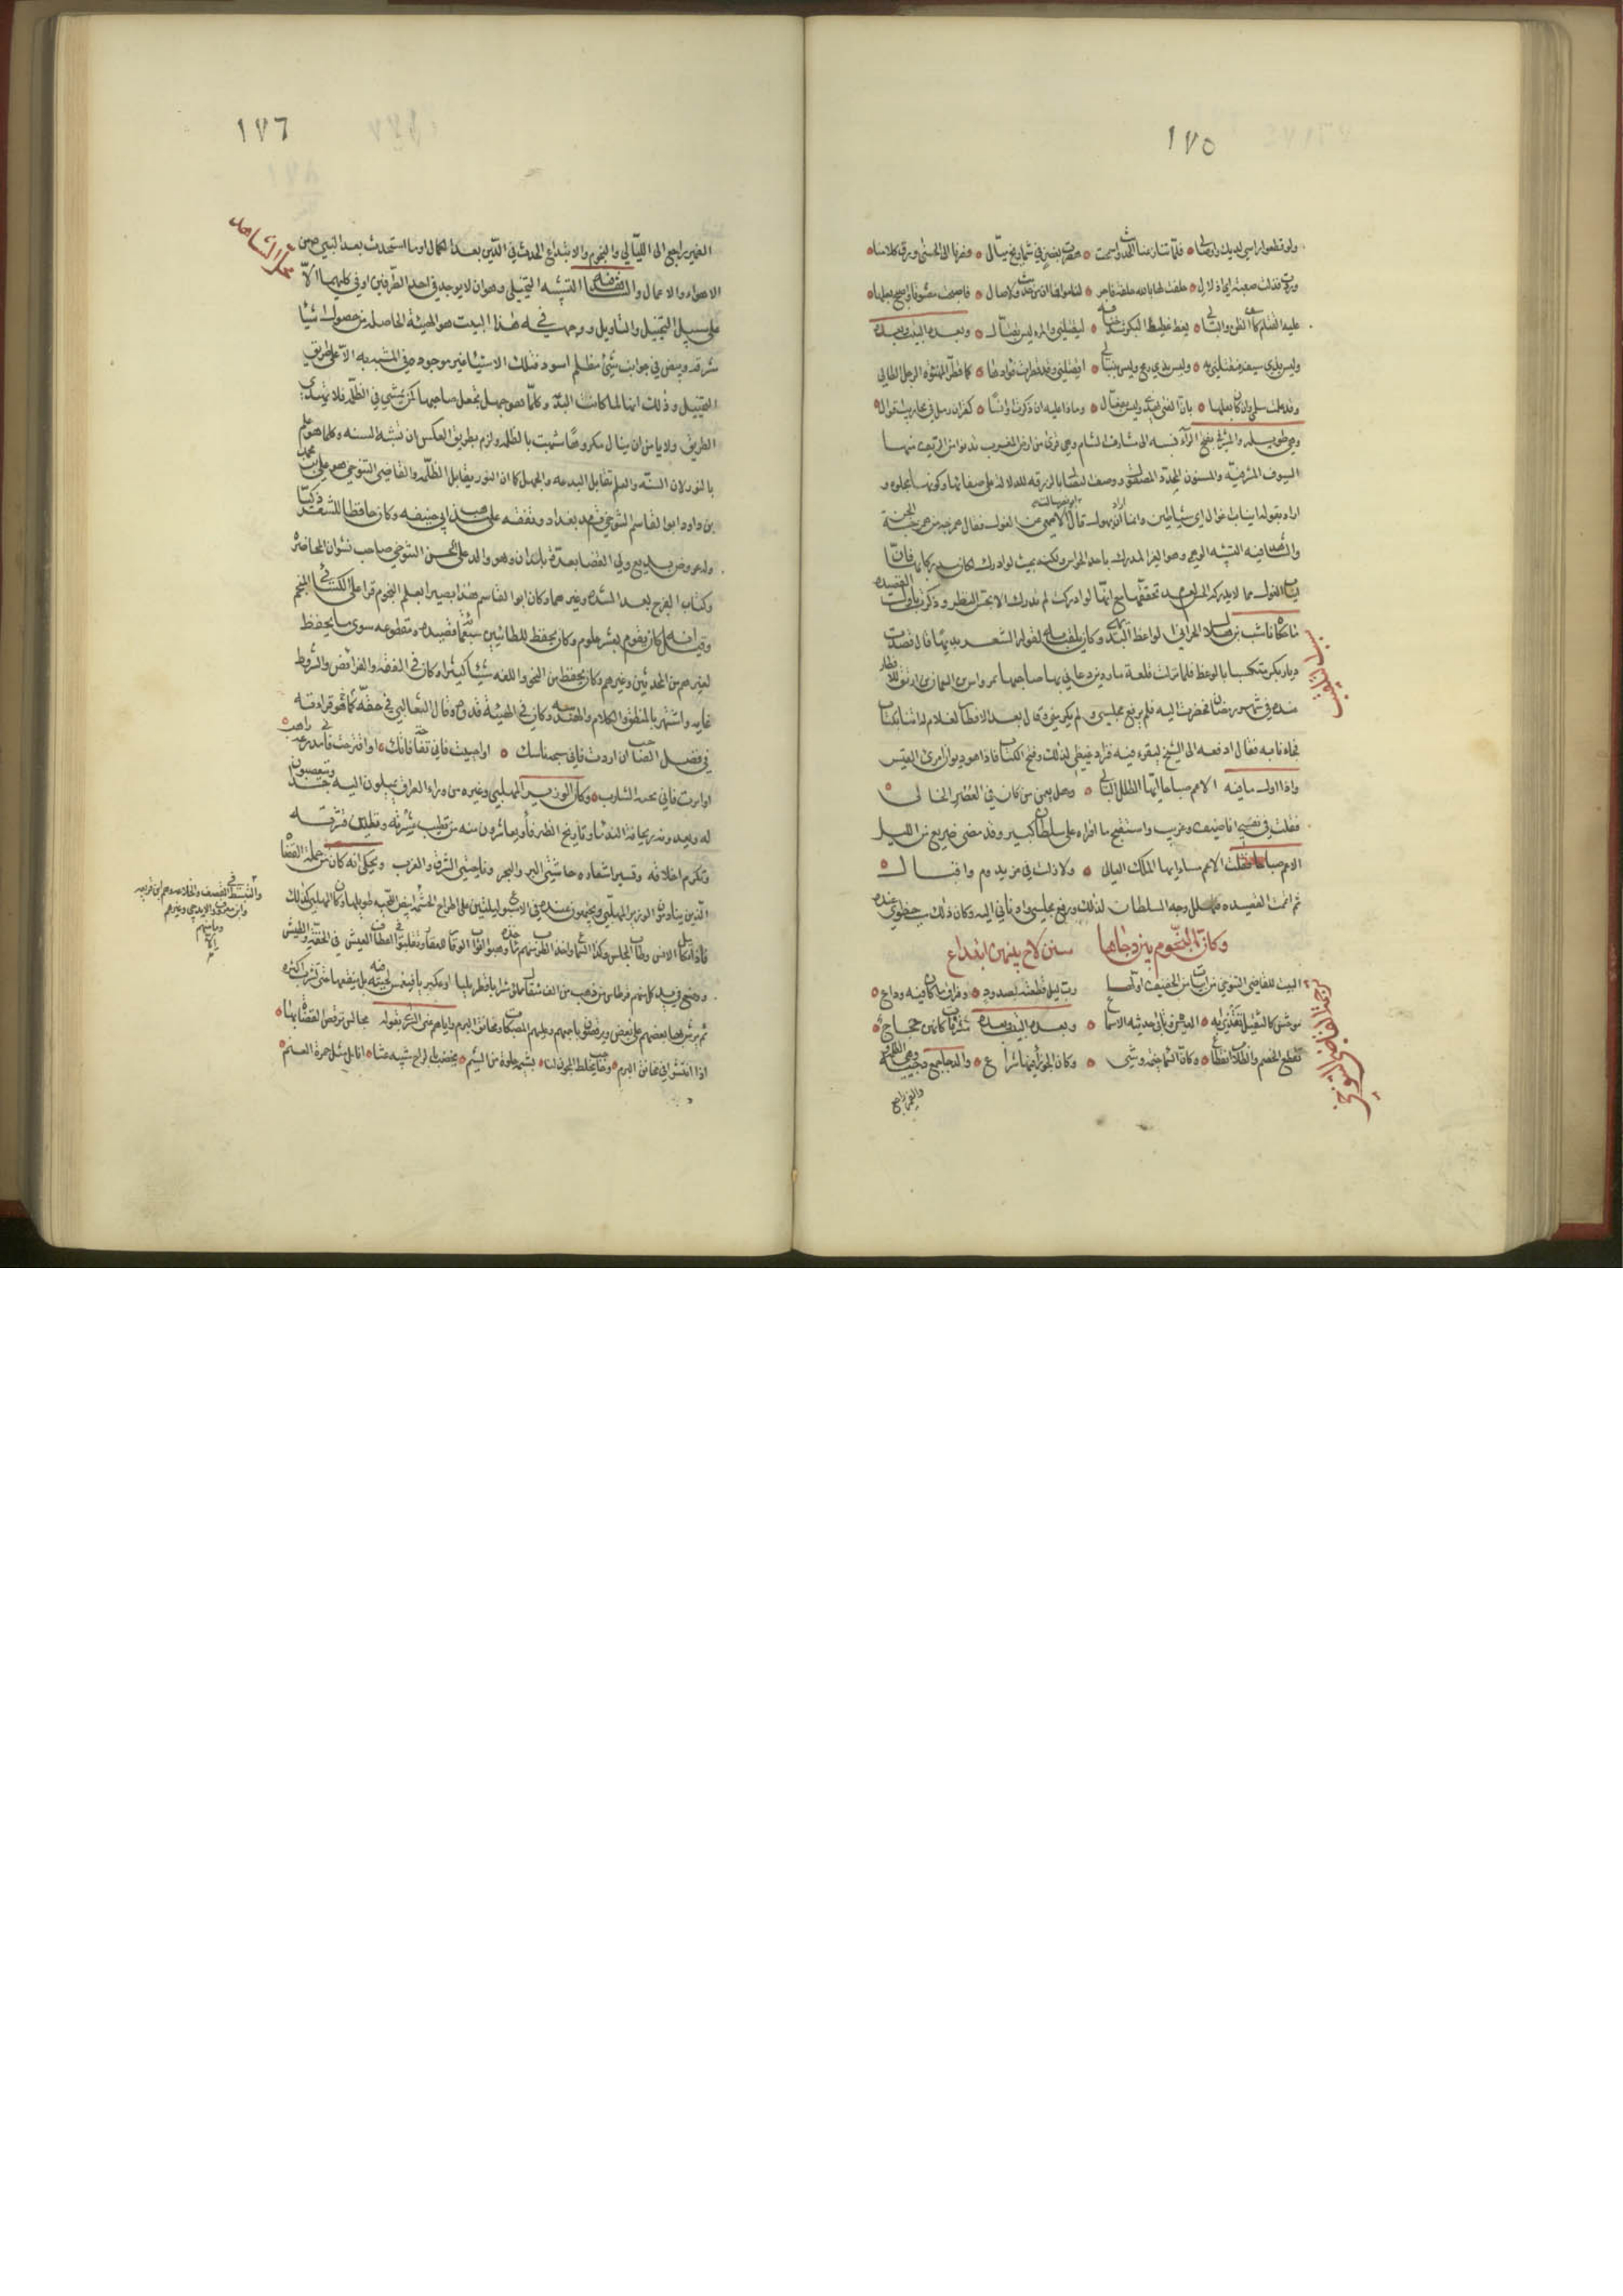 ١٧٥
ولو قطعوا راسي لديك واوصالي فلما تنازعنا الحديث واسمحت هصرت بغصن ذي شماريخ ميال فصرنا الى الحسنى ورق كلامنا
ورضت فذلت صعبة اي اذلال حلفت لها بالله حلفة فاجر لناموا فما ان من حديث ولا صال فاصبحت معشوقا واصبح بعلها
عليه القتام كاسف الظن والبال يغط غطيط البكر شد خناقه ليقتلني والمرء ليس بقتال وبعده البيت وبعده
وليس بذي سيف فيقتلني به وليس بذي رمح وليس بنبال ايقتلني وقد قطرت فؤادها كما قطر المهنوءة الرجل الطالي
وقد علمت سلمى وان كان بعلها بان الفتى يهذي وليس بفعال وماذا عليه ان ذكرت اوانسا كغزلان رمل في محاريب اقوال
وهي طويلة والمشرفي بفتح الرآء نسبه الى مشارف الشام وهي قرى من ارض العرب تدنو من الريف منها
السيوف المشرفية والمسنون المحدد المصقول ووصف النصال بالزرقة للدلالة على صفائها وكونها مجلوه و
اراد بقوله انياب اغوال اي شياطين وانما اراد ان يهول قال ابو نصر سالت الاصمعي عن الغول فقال همرجة من همرجة الجن
والشاهد فيه التشبيه الوهمي وهو الغير المدرك باحد الحواس ولكنه بحيث لو ادرك لكان مدركا بها فان
انياب الغول مما لا يدركه الحس لعدم تحققها مع انها لو ادركت لم تدرك الا بحس البصر وذكرت بابيات القصيده
ما حكاه ناشب بن هلال الحراني الواعظ البديهي وكان يلقب بذلك لقوله الشعر بديها قال قصدت
ديار بكر متكسبا بالوعظ فلما نزلت قلعة ماردين دعاني بها صاحبها تمرتاش بن ايلغازي بن ارتق للافطار
عنده في شهر رمضان فحضرت اليه فلم يرفع مجلسي ولم يكرمني وقال بعد الافطار لغلام له ائتنا بكتاب
فجاءنا به فقال ادفعه الى الشيخ ليقرء فيه فزاد غيظي لذلك وفتح الكتاب فاذا هو ديوان امرئ القيس
واذا اول ما فيه الا عم صباحا ايها الطلل البالي وهل يعمن من كان في العصر الخالي
فقلت في نفسي انا ضيف وغريب واستفتح ما اقراه على سلطان كبير وقد مضى هزيع من الليل
الا عم صباحا فقلت الا عم مساء ايها الملك العالي ولا زلت في عز يدوم واقبال
ثم اتممت القصيده فتهلل وجه السلطان لذلك ورفع مجلسي وادناني اليه وكان ذلك سبب حظوتي عنده
وكان النجوم بين دجاها سنن لاح بينهن ابتداع
البيت للقاضي التنوخي من ابيات من الخفيف اولها رب ليل قطعته بصدود وفراق ما كان فيه وداع
موحش كالثقيل تقذى به العين وتابى حديثه الاسماع وبعده البيت وبعده مشرقات كانهن حجاج
تقطع الخصم والظلام انقطاع وكان السماء خيمة وشي وكان الجوزاء فيها شراع والدجا جمع دجية وهي الظلمة
والضمير راجع
بسبب التلقيب
ترجمة القاضي التنوخي
١٧٦
الضمير راجع الى الليالي والنجوم والابتداع الحدث في الدين بعد الاكمال او ما استحدث بعد النبي من
الاهواء والاعمال والشاهد فيه التشبيه التخيلي وهو ان لا يوجد في احد الطرفين او في كليهما الا
على سبيل التخييل والتاويل ووجهه في هذا البيت هو الهيئة الحاصله من حصول اشيا
مشرقه وبيض في جوانب شيئ مظلم اسود فتلك الاشيا غير موجوده في المشبه به الا على طريق
التخييل وذلك انها لما كانت البدعة وكلما هو جهل تجعل صاحبها كمن يمشي في الظلمة فلا يهتدي
الطريق ولا يامن ان ينال مكروها شبهت بالظلمه ولزم بطريق العكس ان تشبه السنه وكلما هو علم
بالنور لان السنه والعلم تقابل البدعه والجهل كما ان النور يقابل الظلمه والقاضي التنوخي هو علي بن محمد
بن داود ابو القاسم التنوخي قدم بغداد وتفقه على مذهب ابي حنيفه وكان حافظا للشعر ذكيا
وله عروض بديع وولي القضا بعدة بلدان وهو والد علي المحسن التنوخي صاحب نشوان المحاضره
وكتاب الفرج بعد الشده وغيرهما وكان ابو القاسم هذا بصيرا بعلم النجوم قرا على الكسائي المنجم
وقيل انه كان يقوم بعشر علوم وكان يحفظ للطائيين سبعمائة قصيده ومقطوعه سوى ما يحفظ
لغيرهم من المحدثين وغيرهم وكان يحفظ من النحو واللغه شيئا كثيرا وكان في الفقه والفرائض والشروط
غايه واشتهر بالمنطق والكلام والهندسه وكان في الهيئة قدوة وقال الثعالبي في حقه كما قرات
في فصل الصاحب ان اردت فاني سبحة ناسك او احببت فاني تفاحة فاتك او اقترحت فاني مدرعة راهب
او اثرت فاني تحية الشارب وكان الوزير المهلبي وغيره من وزراء العراق يميلون اليه جدا ويتعصبون
له ويعدونه ريحانة الندما وتاريخ الظرفا ويعاشرون منه من تطيب عشرته وتلين قشرته
وتكرم اخلاقه وتسير اشعاره حاشيتي البر والبحر وناحيتي الشرق والغرب ويحكى انه كان من جملة القضاة
الذين ينادمون الوزير المهلبي ويجتمعون عنده في الاسبوع ليلتين على اطراح الحشمه
والتبسط في القصف والخلاعه وهم ابن قريعه
وابن معروف والايذجي وغيرهم
وما منهم
الا
ابيض اللحيه طويلها وكان المهلبي كذلك
فاذا تكامل الانس وطاب المجلس ولذ السماع واخذ الطرب منهم ماخذه وهبوا اثواب الوقار للعقار وتقلبوا في اعطاف العيش في الخفة والطيش
ووضع في يد كل منهم طاس من ذهب من الف مثقال مملؤ شرابا قطربليا او عكبريا فيغمس لحيته فيه بل ينقعها حتى تتشرب اكثره
ثم يرش بها بعضهم على بعض ويرقصون باجمعهم وعليهم المصبغات ومخانق البرم واياهم عنى السري بقوله مجالس ترقص القضاة بها
اذا انتشوا في مخانق البرم وصاحب يخلط المجون لنا بشيمة حلوة من الشيم يخضب بالراح شيبه عبثا انامل مثل حمرة العنم
محل الشاهد